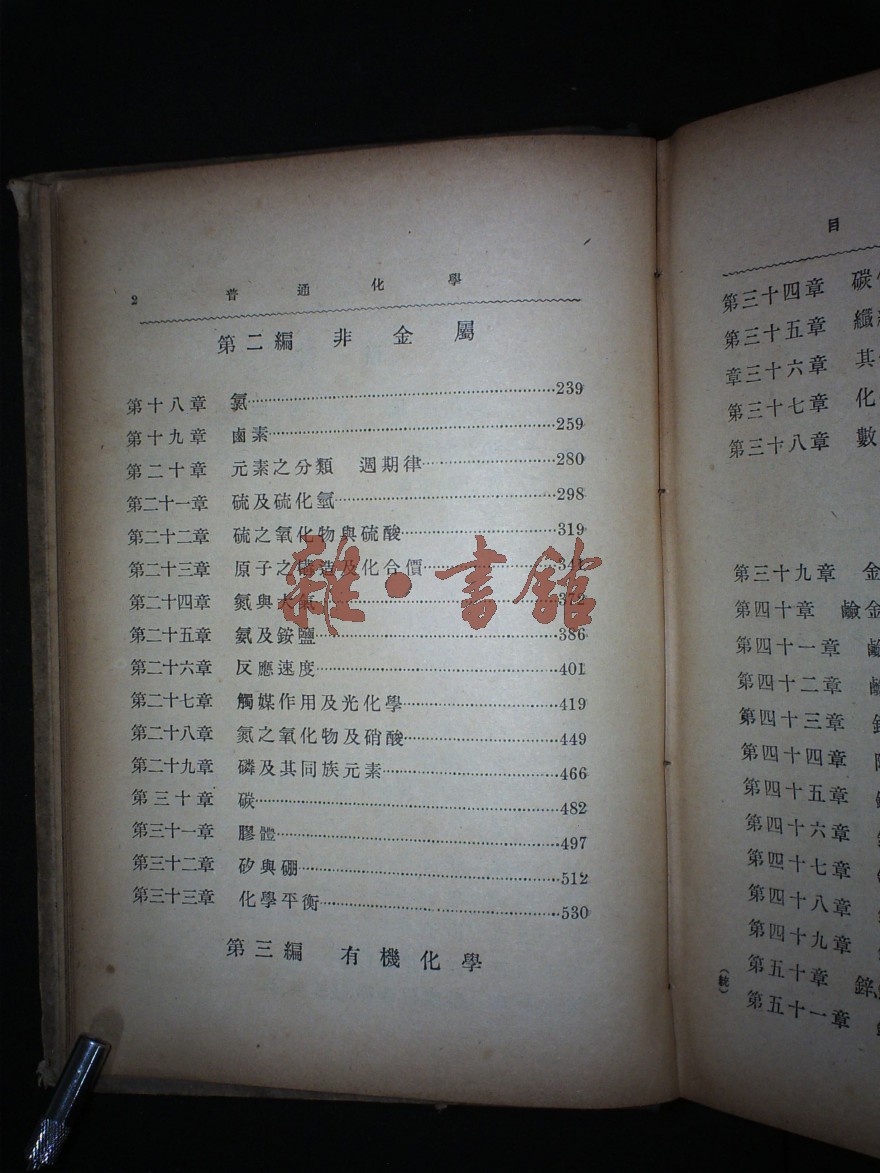 2 普通化學
第二編 非金屬
第十八章 氯……239
第十九章 鹵素……259
第二十章 元素之分類 週期律……280
第二十一章 硫及硫化氫……298
第二十二章 硫之氧化物與硫酸……319
第二十三章 原子之構造及化合價……341
第二十四章 氮與大氣……372
第二十五章 氨及銨鹽……386
第二十六章 反應速度……401
第二十七章 觸媒作用及光化學……419
第二十八章 氮之氧化物及硝酸……449
第二十九章 磷及其同族元素……466
第三十章 碳……482
第三十一章 膠體……497
第三十二章 矽與硼……512
第三十三章 化學平衡……530
第三編 有機化學
雜·書館
目
第三十四章 碳
第三十五章 纖
章三十六章 其
第三十七章 化
第三十八章 數
第三十九章 金
第四十章 鹼金
第四十一章
第四十二章
第四十三章
第四十四章
第四十五章
第四十六章
第四十七章
第四十八章
第四十九章
第五十章 鋅
第五十一章